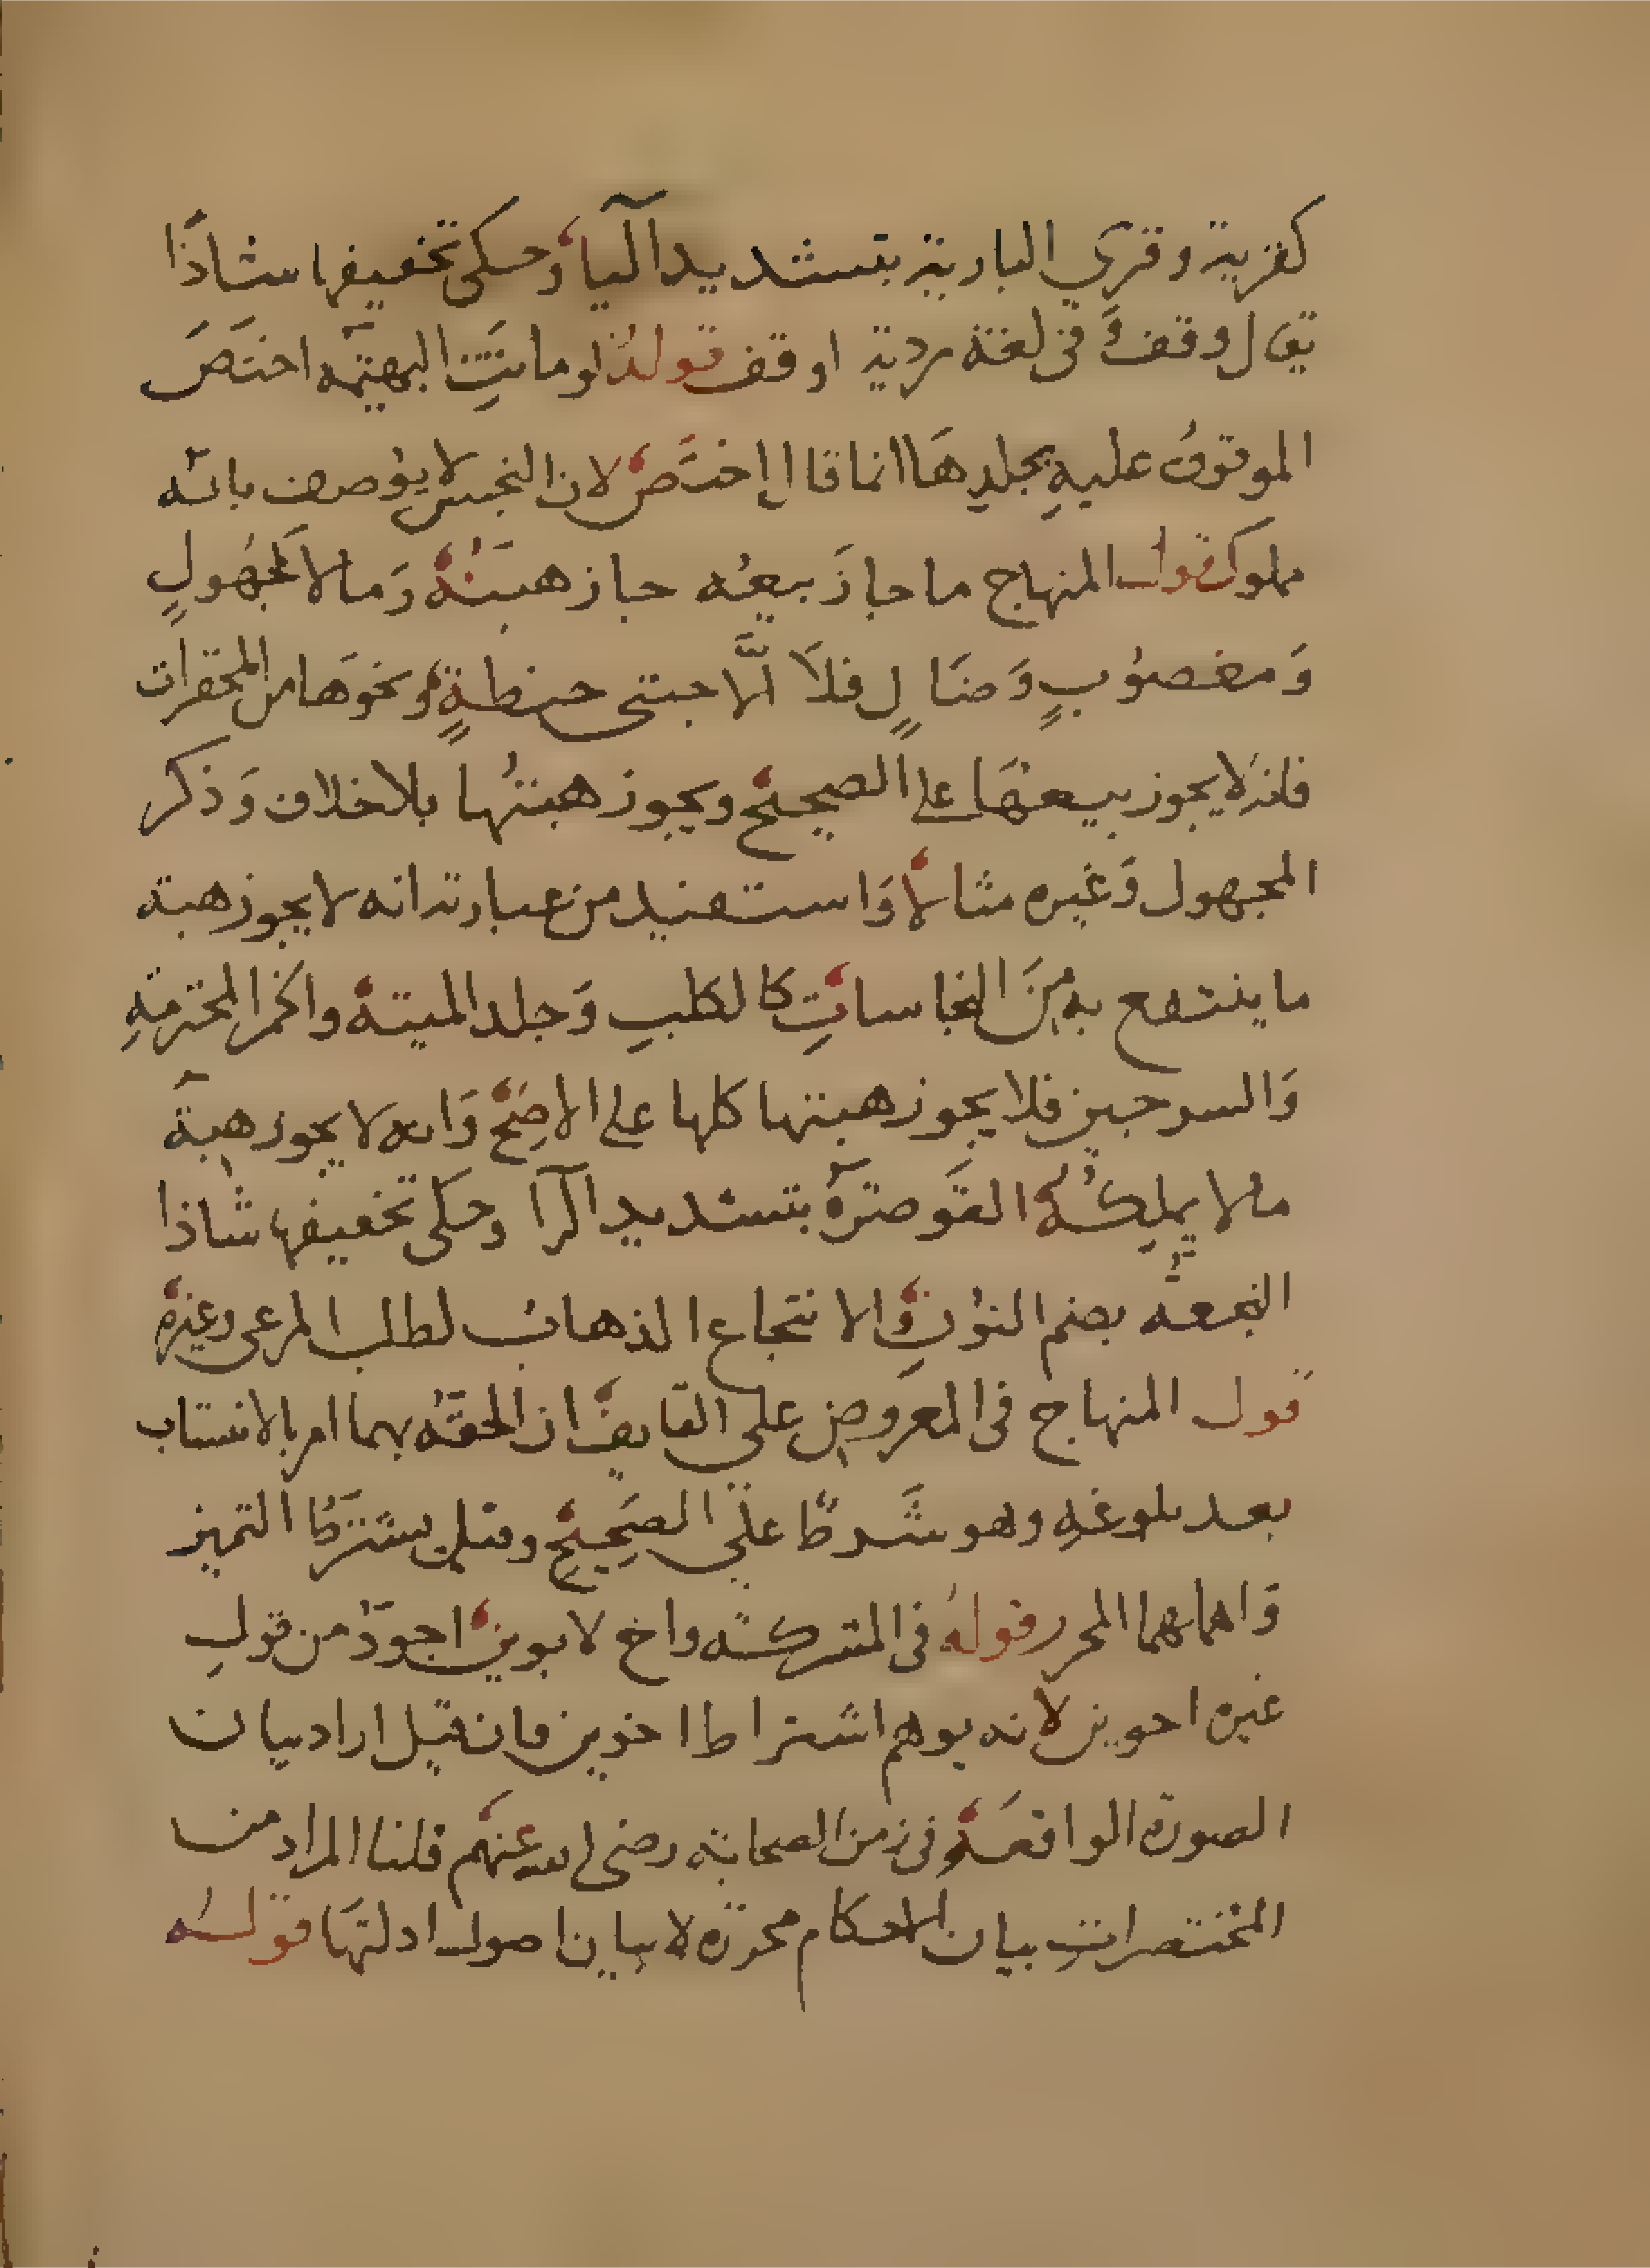 كقرية وقرى البارية بتشديد الياء وحكى تخفيفها شاذا
يقال وقف وفي لغة ردية اوقف قوله لو ماتت البهيمة اختص
الموقوف عليه بجلدها انما قال اختص لان النجس لا يوصف بانه
مملوك قول المنهاج ما جاز بيعه جاز هبته وما لا كمجهول
ومغصوب وضال فلا الا حبتي حنطة ونحوها من المحقرات
فانه لا يجوز بيعها على الصحيح ويجوز هبتها بلا خلاف وذكر
المجهول وغيره مثالا واستفيد من عبارته انه لا يجوز هبة
ما ينتفع به من النجاسات كالكلب وجلد الميتة والخمر المحترمة
والسرجين فلا يجوز هبتها كلها على الاصح وانه لا يجوز هبة
ما لا يملكه القوصرة بتشديد الرا وحكى تخفيفها شاذا
النجعة بضم النون والانتجاع الذهاب لطلب المرعى وغيره
قول المنهاج في المعروض على القايف ان الحقه بهما امر بالانتساب
بعد بلوغه وهو شرط على الصحيح وقيل يشترط التميز
واهملهما المحرر قوله في المشركة واخ لابوين اجود من قول
غيره اخوين لانه يوهم اشتراط اخوين فان قيل اراد بيان
الصورة الواقعة في زمن الصحابة رضي الله عنهم قلنا المراد من
المختصرات بيان الاحكام محررة لا بيان اصول ادلتها قوله